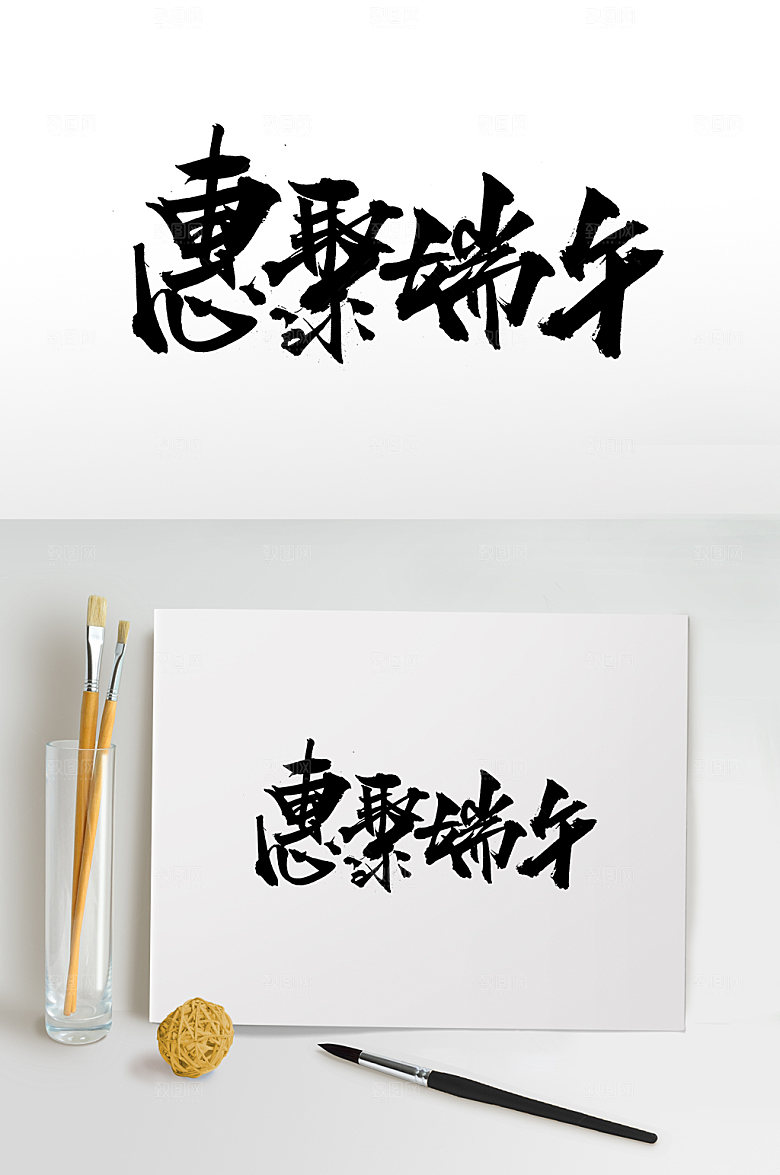 惠聚端午
惠聚端午